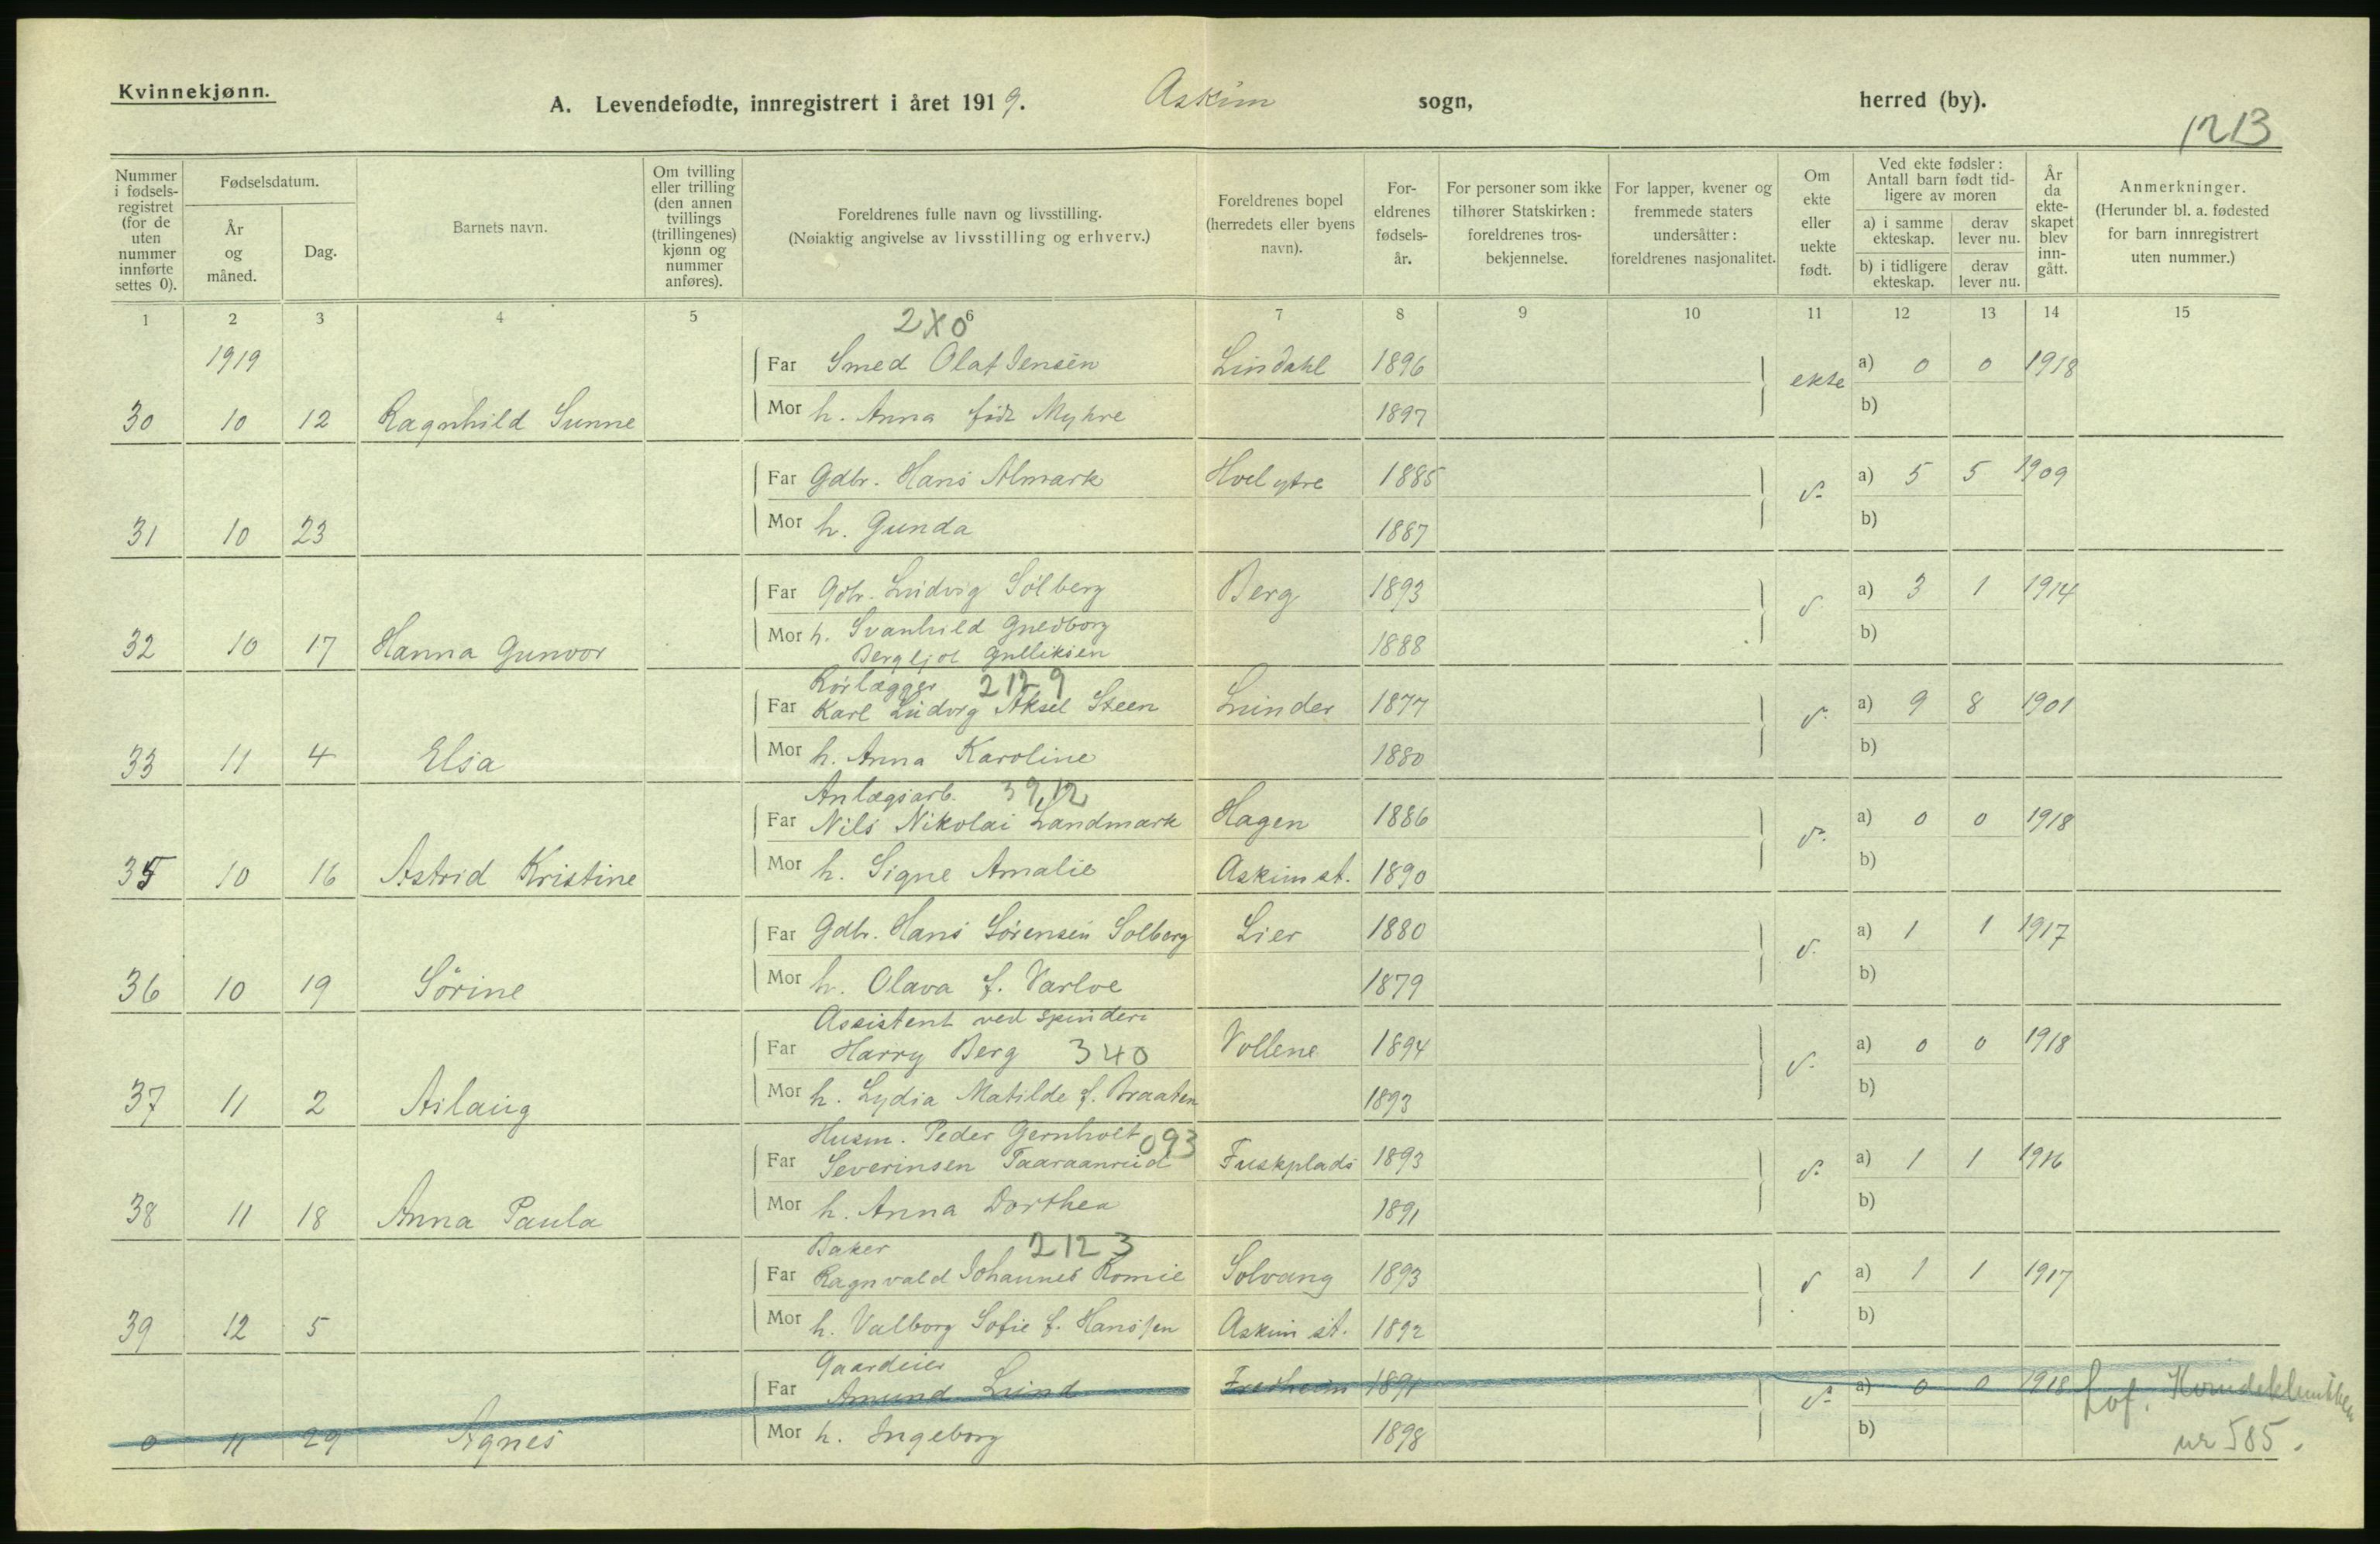 Kvinnekjønn.
A. Levendefødte, innregistrert i året 1919. Askim sogn, herred (by).
1213
Nummer i fødsels-registret (for de uten nummer innførte settes 0).
Fødselsdatum.
År og måned.
Dag.
Barnets navn.
Om tvilling eller trilling (den annen tvillings (trillingenes) kjønn og nummer anføres).
Foreldrenes fulle navn og livsstilling.
(Nøiaktig angivelse av livsstilling og erhverv.)
Foreldrenes bopel (herredets eller byens navn).
For-eldrenes fødsels-år.
For personer som ikke tilhører Statskirken: foreldrenes tros-bekjennelse.
For lapper, kvener og fremmede staters undersåtter: foreldrenes nasjonalitet.
Om ekte eller uekte født.
Ved ekte fødsler: Antall barn født tid-ligere av moren
a) i samme ekteskap.
derav lever nu.
b) i tidligere ekteskap.
derav lever nu.
År da ekte-skapet blev inn-gått.
Anmerkninger.
(Herunder bl. a. fødested for barn innregistrert uten nummer.)
1 2 3 4 5 6 7 8 9 10 11 12 13 14 15
2X0
1919
Far Smed Olaf Jensen Lindahl 1896 ekte a) 0 0 1918
30 10 12 Ragnhild Sunne Mor h. Anna født Myhre 1897 b)
Far Gdbr. Hans Almark Hoel ytre 1885 a) 5 5 1909
31 10 23 Mor h. Gunda 1887 b)
Far Gdbr. Ludvig Sølberg Berg 1893 a) 3 1 1914
32 10 17 Hanna Gunvor Mor h. Svanhild Gnedborg 1888 b)
Bergljot Gulliksen
Rørlægger 2129
Far Karl Ludvig Aksel Steen Lunder 1877 a) 9 8 1901
33 11 4 Elsa Mor h. Anna Karoline 1880 b)
Anlægsarb. 3912
Far Nils Nikolai Landmark Hagen 1886 a) 0 0 1918
35 10 16 Astrid Kristine Mor h. Signe Amalie Askim st. 1890 b)
Far Gdbr. Hans Sørensen Solberg Lier 1880 a) 1 1 1917
36 10 19 Sörine Mor h. Olava f. Varloe 1879 b)
Assistent ved spinderi
Far Harry Berg 340 Vollene 1894 a) 0 0 1918
37 11 2 Aslaug Mor h. Lydia Matilde f. Braaten 1893 b)
Husm. Peder Gernholt 093
Far Severinsen Taaraanrud Fuskplads 1893 a) 1 1 1916
38 11 18 Anna Paula Mor h. Anna Dorthea 1891 b)
Baker 2123
Far Ragnvald Johannes Romie Solvang 1893 a) 1 1 1917
39 12 5 Mor h. Valborg Sofie f. Hanssen Askim st. 1892 b)
Gaardeier
Far Amund Lund Fredheim 1891 a) 0 0 1918
0 11 29 Agnes Mor h. Ingeborg 1898 b) nr 585.